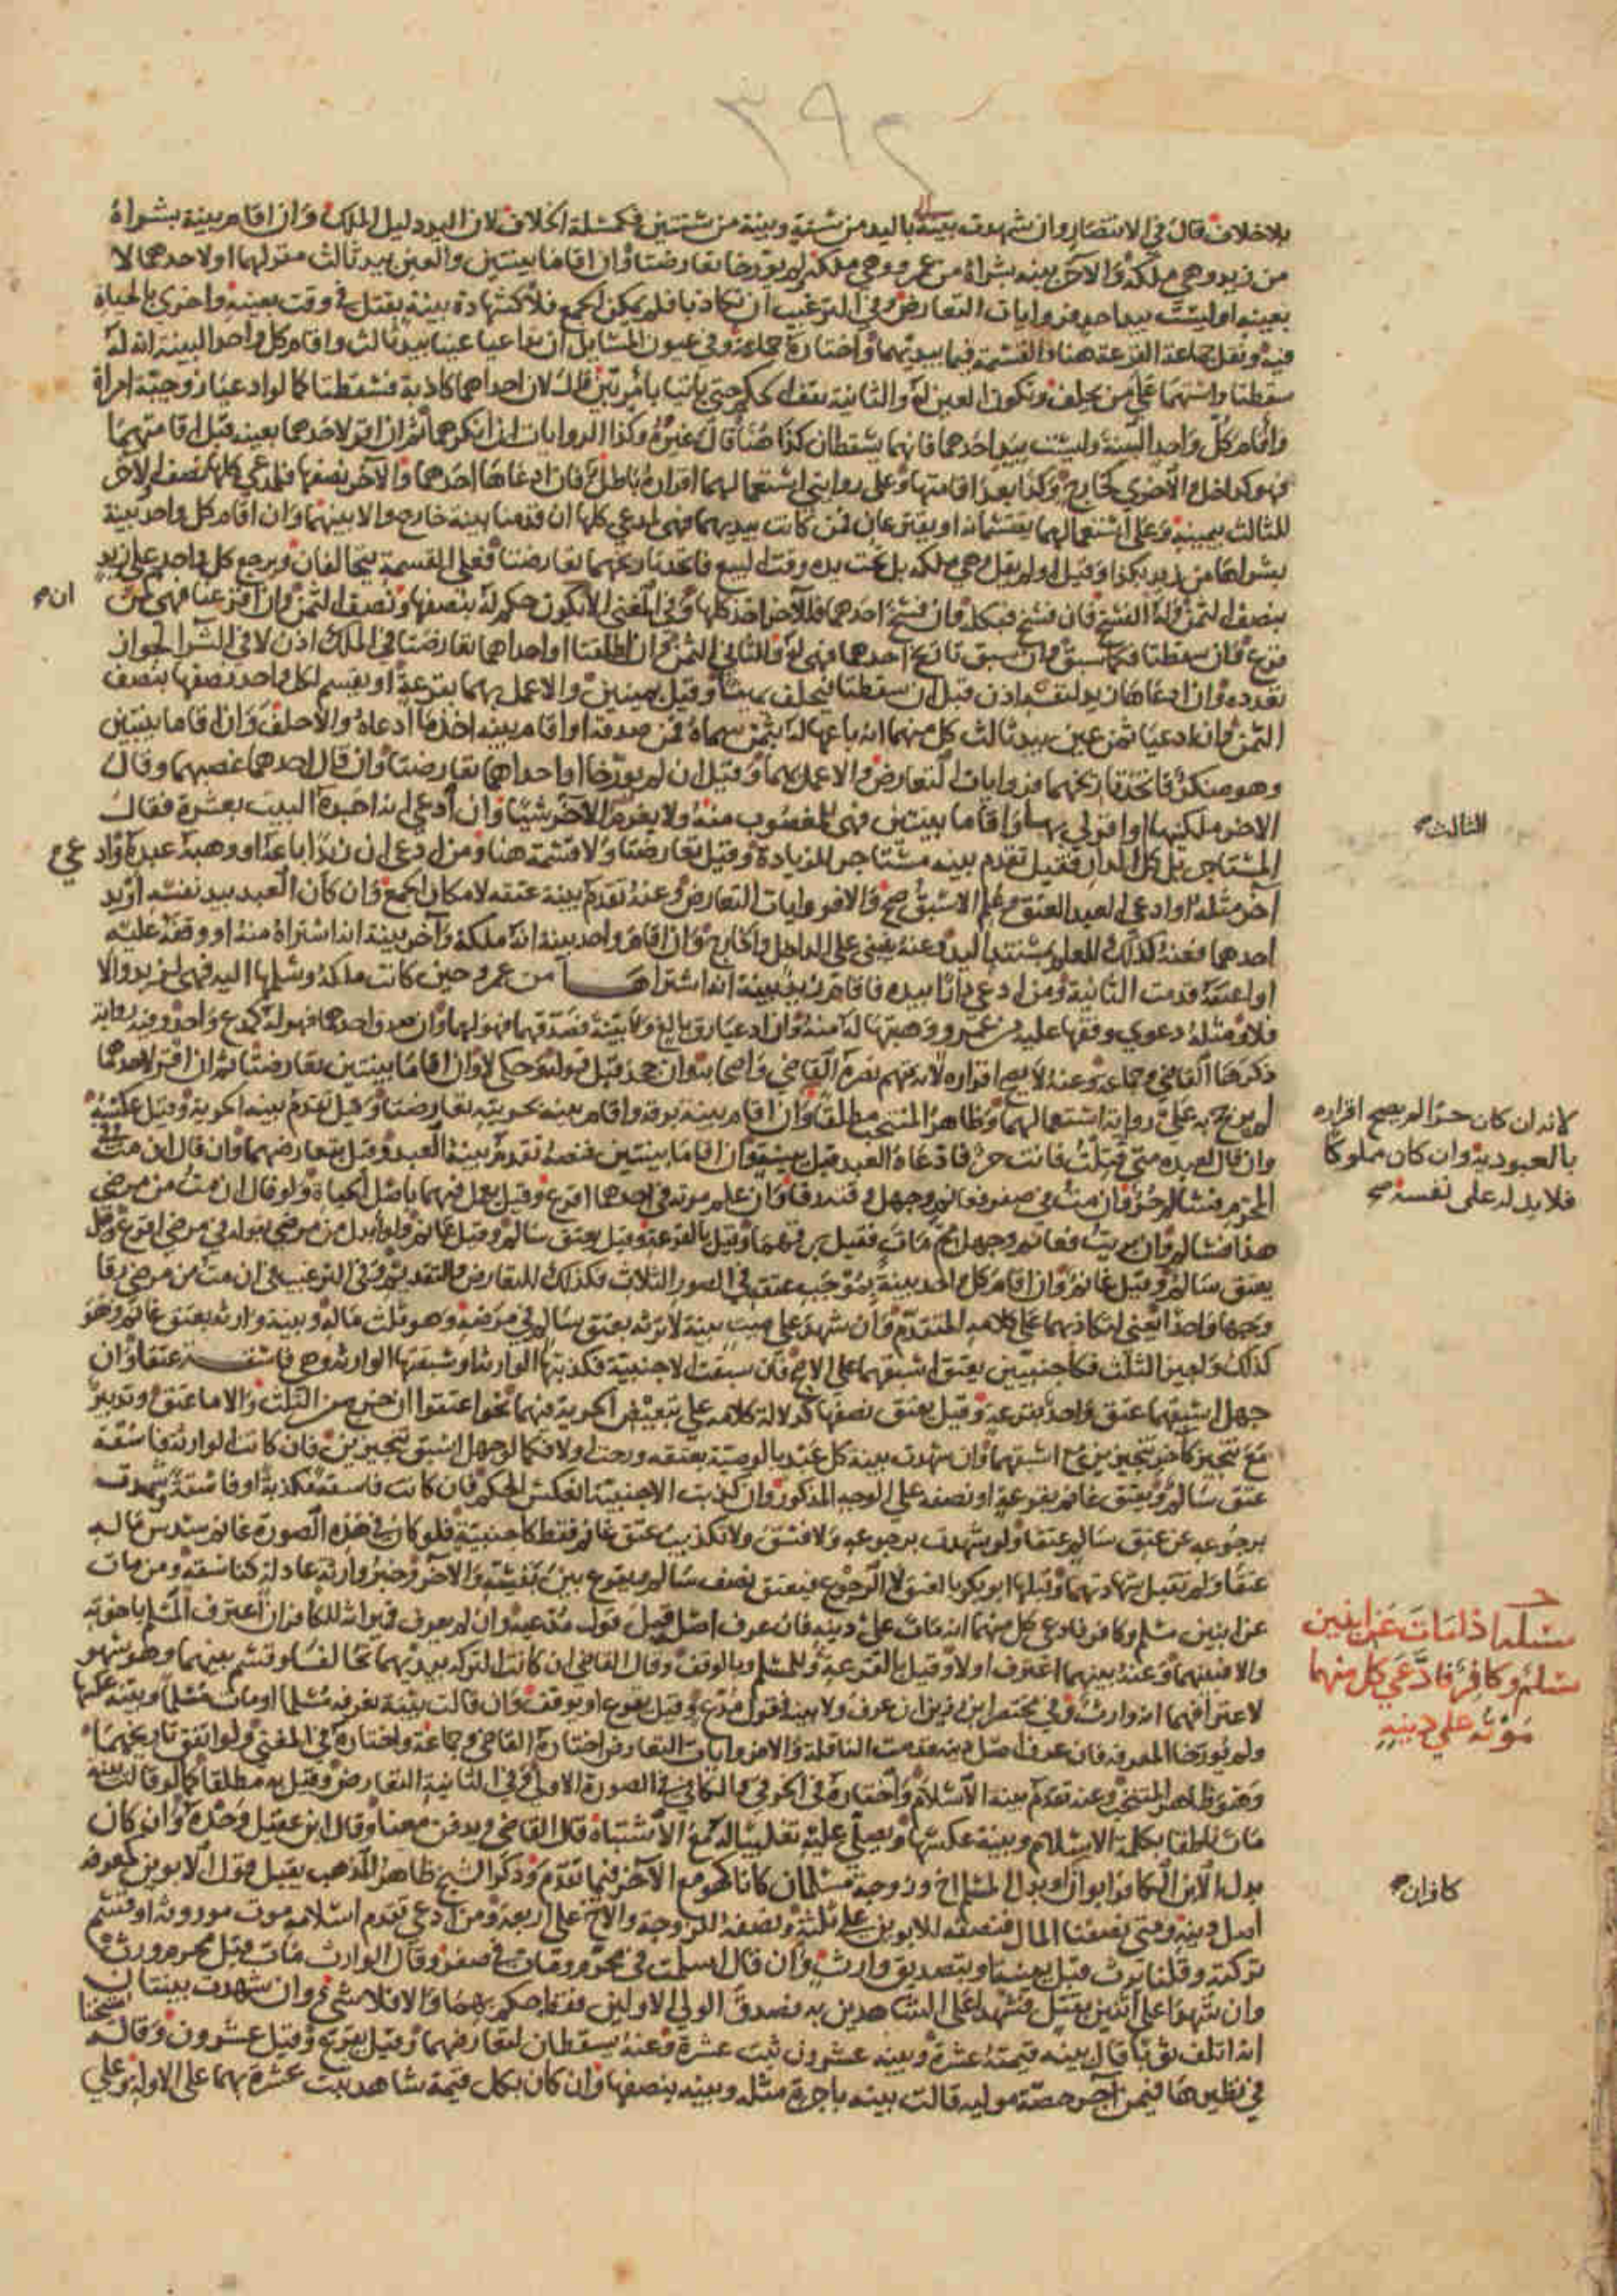 ٣٩٢
بلا خلاف قال في الانتصار وان شهدت بينة باليد من سنة وبينة من سنتين فكمسئلة الخلاف لان اليد دليل الملك وان اقام بينة بشراه
من زيد وهي ملكه والاخر بينة بشراه من عمرو وهي ملكه لم يورخا تعارضتا وان اقاما بينتين والعين بيد ثالث مقر لهما او لاحدهما لا
بعينه او ليست بيد احد فروايات التعارض وفي الترغيب ان تكاذبا فلم يمكن الجمع فلا كشهادة بينة بقتل في وقت بعينه واخرى بالحياة
فيه ونقل جماعة القرعة هنا والقسمة فيما بيديهما واختاره جماعة وفي عيون المسايل ان تداعيا عينا بيد ثالث واقام كل واحد البينة انه له
سقطتا واستهما على من يحلف وتكون العين له والثانية يقف الحكم حتى ياتيا بامر بين قلت لان احداهما كاذبة فسقطتا كما لو ادعيا زوجية امراة
واقام كل واحد البينة وليست بيد احدهما فانهما يسقطان كذا هنا قال غيره وكذا الروايات ان انكرهما ثم ان اقر لاحدهما بعينه قبل اقامتهما
فهو كداخل والاخرى كخارج وكذا بعد اقامتها وعلى روايتي استعمالهما اقراره باطل فان ادعاها احدهما والاخر نصفها فلمدعي كلها نصف والاخر
للثالث بيمينه وعلى استعمالهما يقتسمانه او يقترعان فان كانت بيديهما فهي لمدعي كلها ان قدمنا بينة خارج والا بينهما وان اقام كل واحد بينة
بشرائها من زيد بكذا وقيل او لم يقل وهي ملكه بل تحت يده وقت البيع فاتحد تاريخهما تعارضتا فعلى القسمة يتحالفان ويرجع كل واحد على زيد
بنصف الثمن وله الفسخ فان فسخ فبكله وان فسخ احدهما فللاخر اخذ كلها وفي المغني لا يكون حكم له بنصفها ونصف الثمن وان اقترعنا فهي لمن
ان صح
قرع وان سقطتا فكما سبق وان سبق تاريخ احدهما فهي له وللثاني الثمن وان اطلقتا او احداهما تعارضتا في الملك اذن لا في الشرا لجواز
تعدده وان ادعاها زيد لنفسه اذن قبل ان سقطتا فيحلف يمينا وقيل يمينين والا عمل بهما بقرعة او يقسم لكل واحد نصفها بنصف
الثمن وان ادعيا ثمن عين بيد ثالث كل منهما انه باعها له بثمن سماه فمن صدقه او اقام بينة اخذ ما ادعاه والا حلف وان اقاما بينتين
وهو منكر فاتحد تاريخهما فروايات التعارض والا عمل بهما وقيل ان لم يورخا او احداهما تعارضتا وان قال احدهما غصبنيها وقال
الاخر ملكنيها او اقر لي بها واقاما بينتين فهي للمغصوب منه ولا يغرم للاخر شيئا وان ادعى انه اجره البيت بعشرة فقال
الثالث صح
المستاجر بل كل الدار فقيل تقدم بينة مستاجر للزيادة وقيل تعارضتا ولا قسمة هنا ومن ادعى ان زيدا باعه او وهبه عبده وادعى صح
اخر مثله او ادعى العبد العتق وعلم الاسبق صح والا فروايات التعارض وعنه تقدم بينة عتقه لامكان الجمع وان كان العبد بيد نفسه او يد
احدهما فعنه كذلك للعلم بمستند اليد وعنه يبنى على الداخل والخارج وان اقام واحد بينة انه ملكه واخر بينة انه اشتراه منه او وقفه عليه
او اعتقه قدمت الثانية ومن ادعى دارا بيده فاقام زيد بينة انه اشتراها من عمرو حين كانت ملكه وسلمها اليه فهي لزيد والا
فلا ومثله دعوى وقفها عليه من عمرو وهبتها له منه وان ادعيا رق بالغ ولا بينة فصدقهما فهو لهما وان صدق واحدهما فهو له كمدع واحد وفيه رواية
ذكرها القاضي وجماعة وعنه لا يصح اقراره لانه متهم نصره القاضي واصحابه وان جحد قبل قوله وحكي لا وان اقاما بينتين تعارضتا ثم ان اقر لاحدهما
لم يرجح به على رواية استعمالهما وظاهر المنتخب مطلقا وان اقام بينة برقه واقام بينة بحريته تعارضتا وقيل تقدم بينة الحرية وقيل عكسه
لانه ان كان حرا لم يصح اقراره
بالعبودية وان كان مملوكا
فلا يد له على نفسه صح
وان قال لعبده متى قتلت فانت حر فادعاه العبد قبل ببينة وان اقاما بينتين فعنه تقدم بينة العبد وقيل بتعارضهما وان قال ان مت في
المحرم فسالم حر وان مت في صفر فغانم وجهل وقته رقا وان علم موته في احدهما اقرع وقيل يعمل فيهما باصل الحياة ولو قال ان مت من مرضي
هذا فسالم وان بريت فغانم وجهل مم مات فقيل برقهما وقيل بالقرعة وقيل يعتق سالم وقيل غانم ولو ابدل من مرضي بقوله في مرضي اقرع وقيل
يعتق سالم وقيل غانم وان اقام كل واحد بينة بموجب عتقه في الصور الثلاث فكذلك للتعارض والتقديم وفي الترغيب في ان مت من مرضي رقا
وجها واحدا يعني لتكاذبهما على كلامه المتقدم وان شهد على ميت بينة لا ترثه بعتق سالم في مرضه وهو ثلث ماله وبينة وارثه بعتق غانم وهو
كذلك ولم يجز الثلث فكاجنبيين يعتق اسبقهما على الاصح فان سبقت الاجنبية فكذبتها الوارثة او سبقتها الوارثة وهي فاسقة عتقا وان
جهل اسبقهما عتق واحد بقرعة وقيل يعتق نصفها كدلالة كلامه على تبعيض الحرية فيهما نحو اعتقوا ان خرج من الثلث والا ما عتق وتدبير
مع تنجيز كاخر تنجيزين مع اسبقهما وان شهدت بينة كل عبد بالوصية بعتقه ورخت اولا فكما لو جهل اسبق تنجيزين فان كانت الوارثة فاسقة
عتق سالم ويعتق غانم بقرعة او نصفه على الوجه المذكور وان كذبت الاجنبية انعكس الحكم فان كانت فاسقة مكذبة او فاسقة شهدت
برجوعه عن عتق سالم عتقا ولو شهدت برجوعه ولا فسق ولا تكذيب عتق غانم فقط كاجنبية فلو كان في هذه الصورة غانم سدس ماله
عتقا ولم تقبل شهادتهما وقبلها ابو بكر بالعتق لا الرجوع فيعتق نصف سالم ويقرع بين بقيته والاخر وخبر وارثه عادلة كفاسقة ومن مات
عن ابنين مسلم وكافر فادعى كل منهما انه مات على دينه فان عرف اصل قبل قول مدعيه وان لم يعرف فميراثه للكافر ان اعترف المسلم باخوته
مسئلة اذا مات عن ابنين
مسلم وكافر فادعى كل منهما
موته على دينه
والا فبينهما وعنه بينهما اعترف اولا وقيل بالقرعة وللمسلم وبالوقف وقال القاضي ان كانت التركة بيديهما تحالفا وقسم بينهما وهو سهو
لاعترافهما انه وارث وفي مختصر ابن رزين ان عرف ولا بينة فقول مدع وقيل يقرع او يوقف وان قالت بينة نعرفه مسلما او مات مسلما وبينة عكسها
ولم يورخا المعرفة فان عرف اصل دينه قدمت الناقلة والا فروايات التعارض اختاره القاضي وجماعة واختاره في المغني ولو اتفق تاريخهما
وهو ظاهر المنتخب وعنه تقدم بينة الاسلام واختاره في الخرقي والكافي في الصورة الاولى وفي الثانية التعارض وقيل به مطلقا كما لو قالت بينة
مات ناطقا بكلمة الاسلام وبينة عكسها ويصلى عليه تغليبا له مع الاشتباه قال القاضي ويدفن معنا وقال ابن عقيل وحده وان كان
بدل الابن الكافر ابوان او بدل المسلم اخ وزوجة مسلمان كانا كهو مع الاخر فيما تقدم وذكر الشيخ ظاهر المذهب يقبل قول الابوين كمعرفة
كافران صح
اصل دينه ومتى نصفنا المال فنصفه للابوين على ثلثة ونصفه للزوجة والاخ على اربعة ومن ادعى تقدم اسلامه موت موروثه او قسم
تركته وقلنا يرث قبل ببينة او بتصديق وارث وان قال اسلمت في محرم ومات في صفر وقال الوارث مات قبل محرم ورث
وان شهدا على اثنين بقتل فشهدا على الشاهدين به فصدق الولي الاولين فقط حكم بهما والا فلا شي وان شهدت بينتان
انه اتلف ثوبا قال بينة قيمته عشرة وبينة عشرون ثبت عشرة وعنه يسقطان لتعارضهما وقيل يقرع وقيل عشرون وقاله شيخنا
في نظيرها فيمن اجر حصة موليه قالت بينة باجرة مثله وبينة بنصفها وان كان بكل قيمة شاهد ثبت عشرة بهما على الاولة وعلى